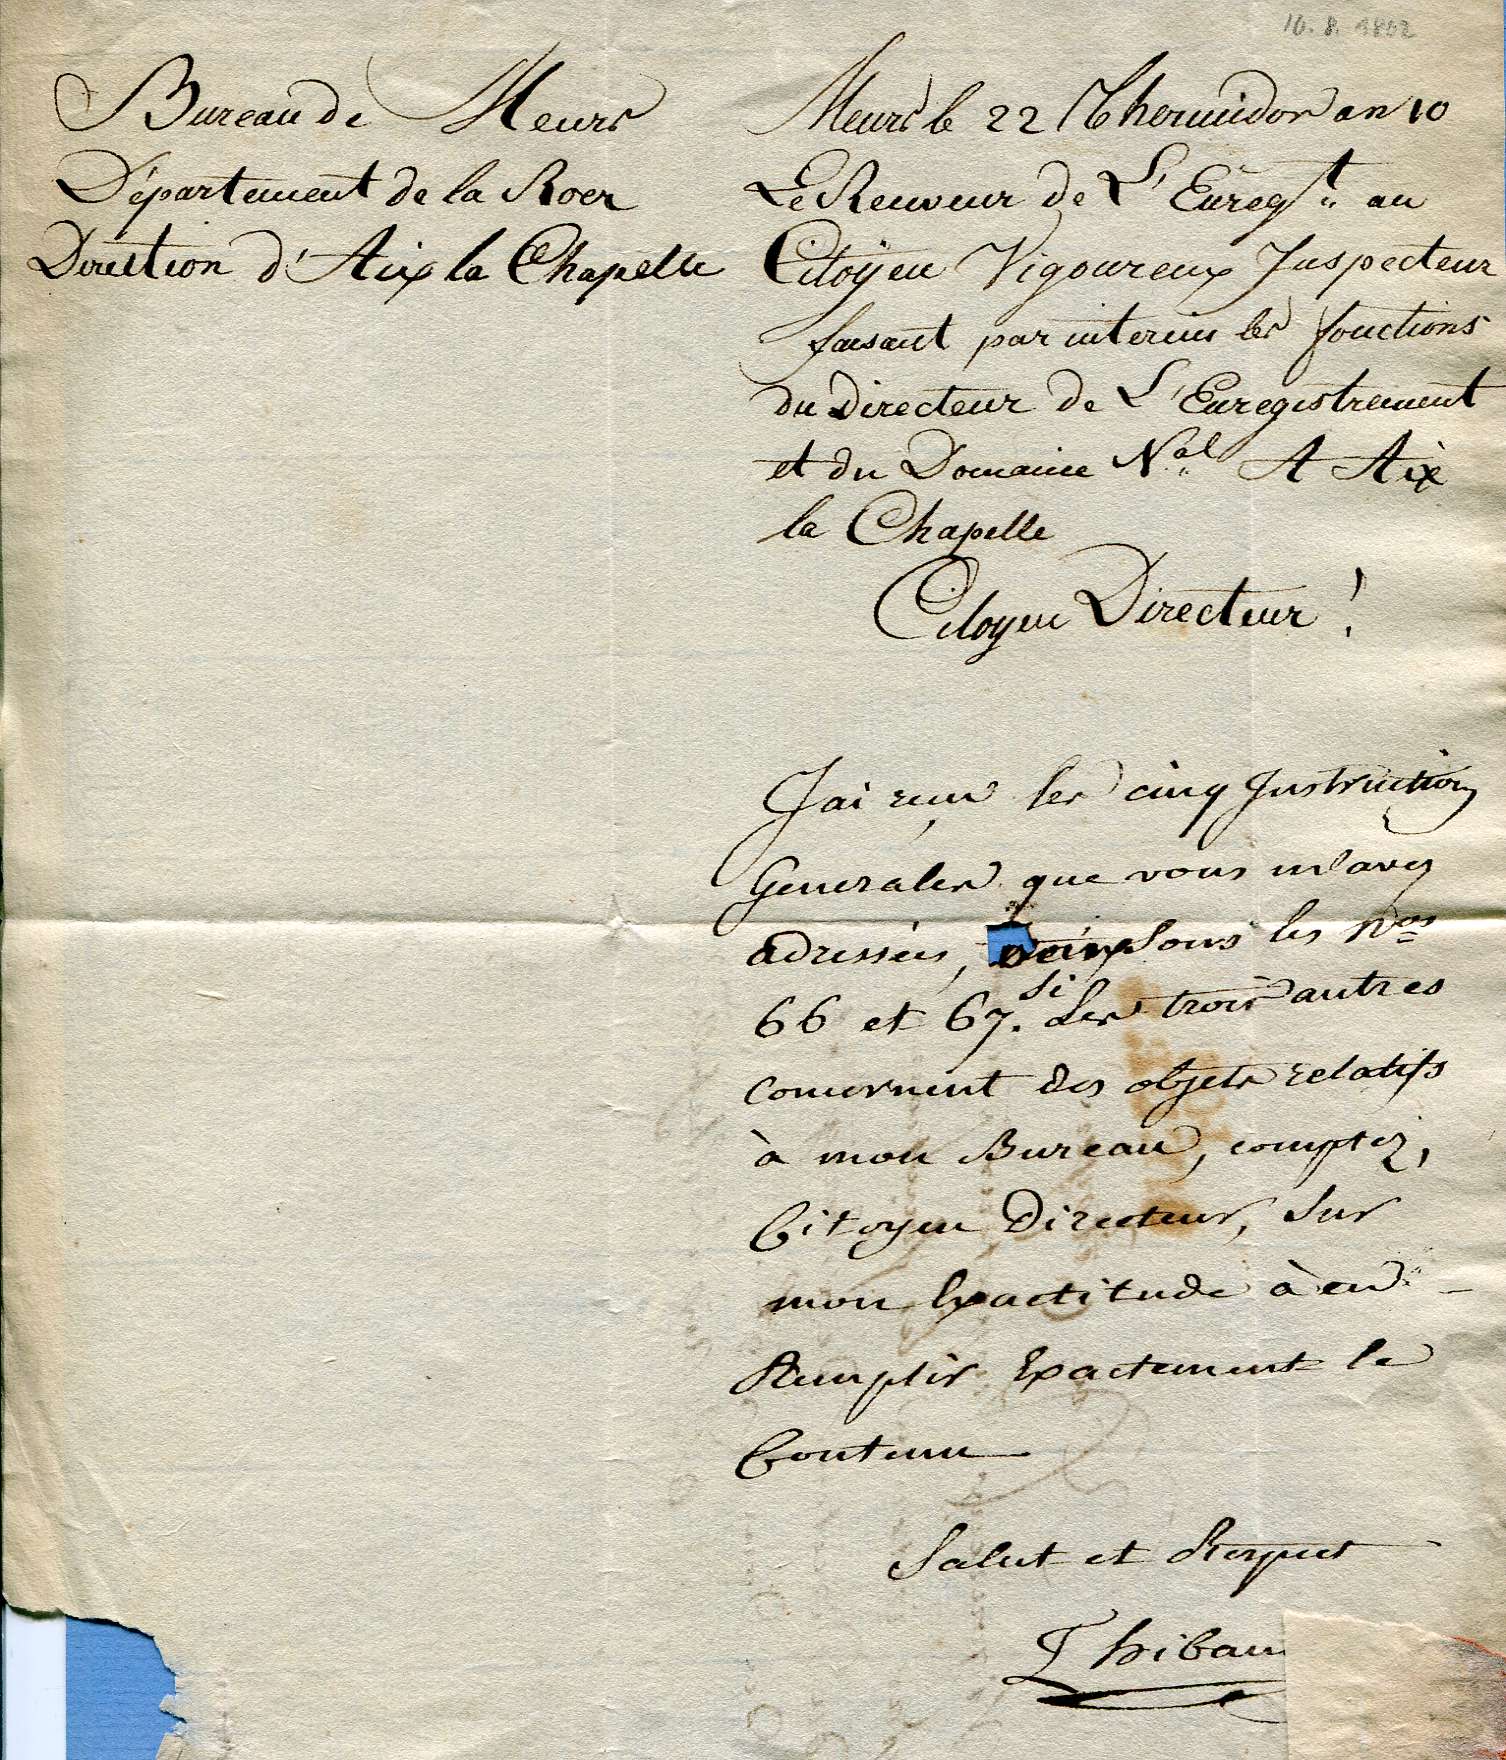 10. 8. 1802
Bureau de Meurs
Département de la Roer
Direction d'Aix la Chapelle
Meurs le 22 Thermidor an 10
Le Receveur de L'Enregt. au
Citoÿen Vigoureux Inspecteur
faisant par interim les fonctions
du Directeur de L'Enregistrement
et du Domaine Nal A Aix
la Chapelle
Citoyen Directeur!
J'ai reçu les cinq Instructions
Generales que vous m'avez
adressées, sous les Nos
66 et 67. si Les trois autres
concernent des objets relatifs
à mon Bureau, comptéz,
Citoyen Directeur, sur
mon Exactitude à en
Remplir Exactement le
Contenu
Salut et Respect
Thibau